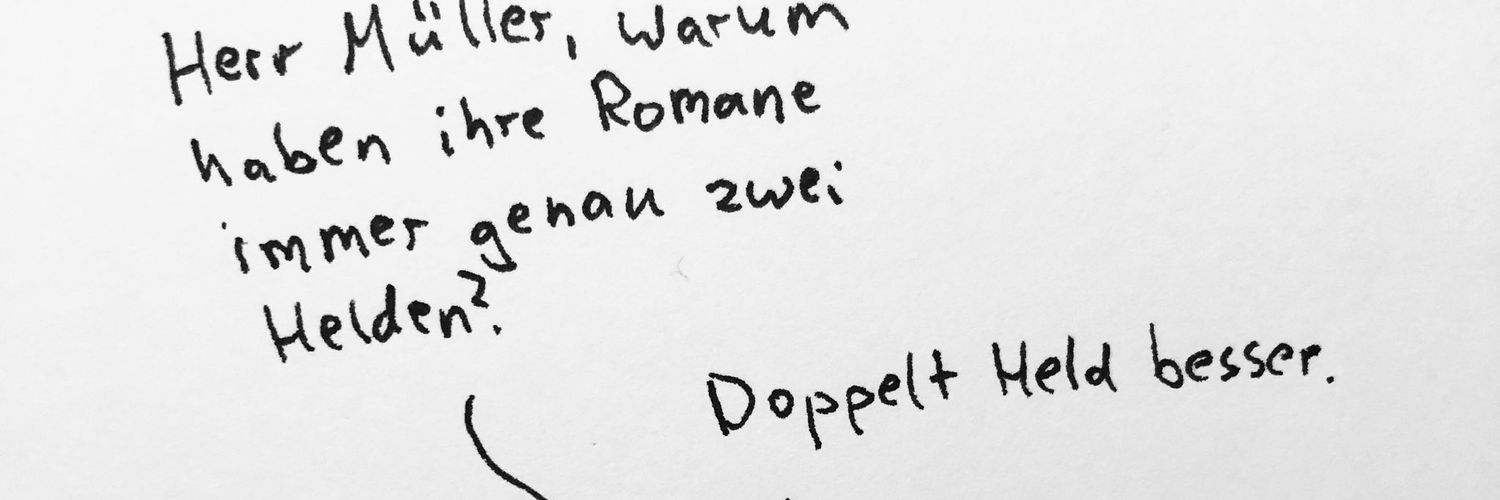 Herr Müller, warum
haben ihre Romane
immer genau zwei
Helden?
Doppelt Held besser.